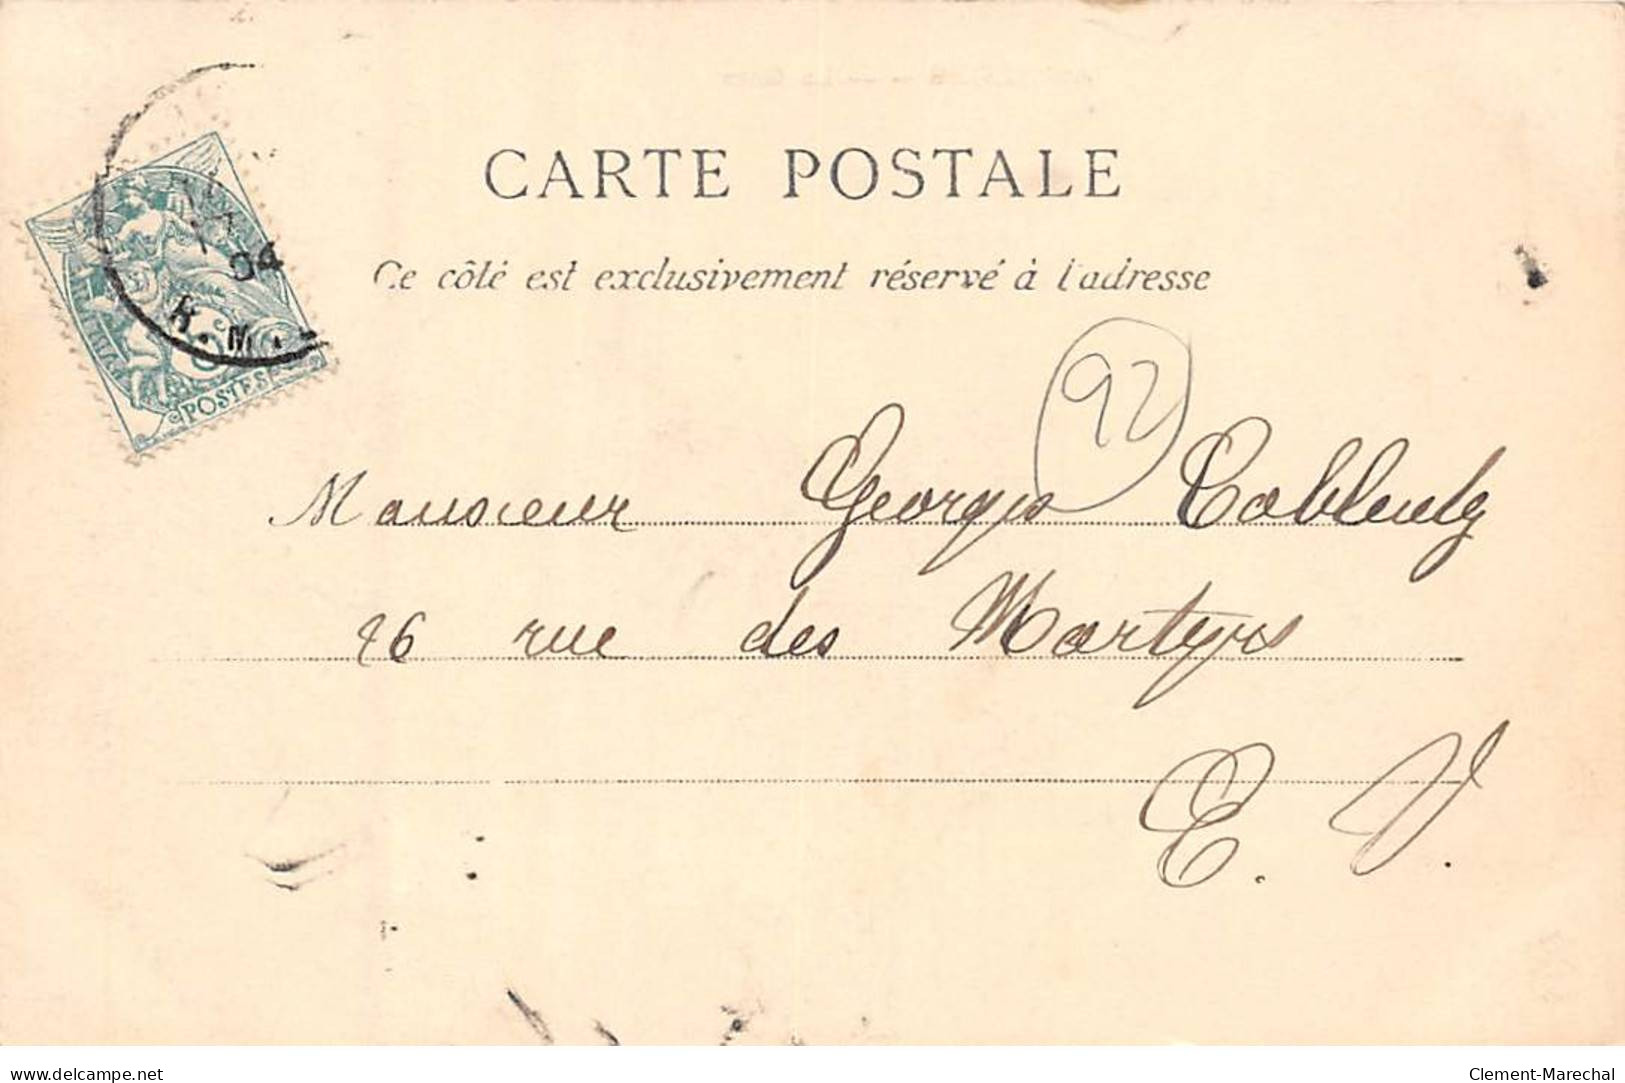 CARTE POSTALE
Ce côté est exclusivement réservé à l'adresse
04
R. M.
5c
POSTES
92
Monsieur Georges Coblentz
26 rue des Martyrs
E. V.
www.delcampe.net
Clement-Marechal